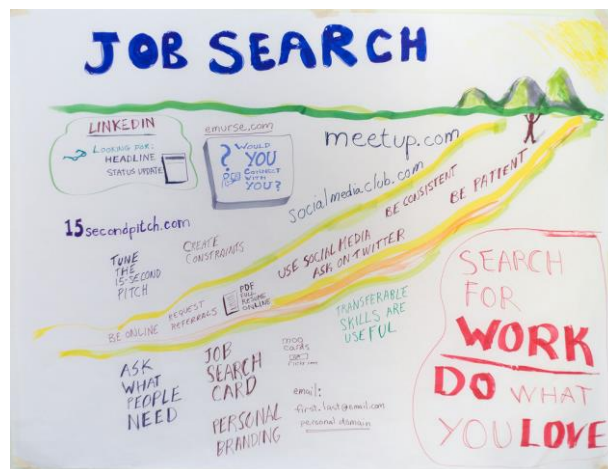 JOB SEARCH
LINKEDIN
LOOKING FOR:
HEADLINE
STATUS UPDATE
emurse.com
WOULD
YOU
CONNECT
WITH
YOU?
meetup.com
socialmediaclub.com
15secondpitch.com
CREATE
CONSTRAINTS
TUNE
THE
15-SECOND
PITCH
BE ONLINE
REQUEST
REFERRALS
PDF
FULL
RESUME
ONLINE
USE SOCIAL MEDIA
ASK ON TWITTER
BE CONSISTENT
BE PATIENT
TRANSFERABLE
SKILLS ARE
USEFUL
ASK
WHAT
PEOPLE
NEED
JOB
SEARCH
CARD
PERSONAL
BRANDING
moo
cards
email:
first.last@email.com
personal domain
SEARCH
FOR
WORK
DO WHAT
YOU LOVE